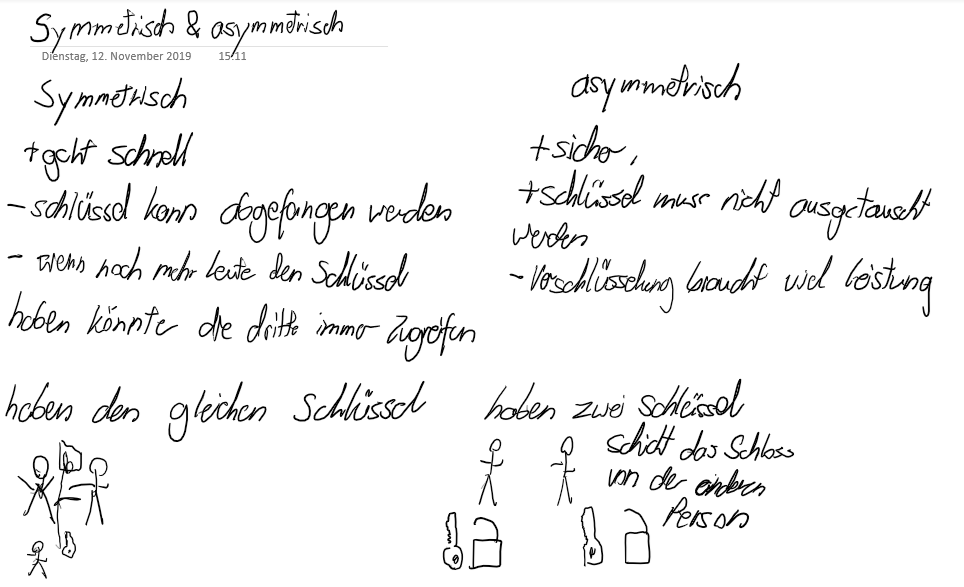 Symmetrisch & asymmetrisch
Dienstag, 12. November 2019 15:11
Symmetrisch
+geht schnell
- schlüssel kann abgefangen werden
- wenn noch mehr Leute den Schlüssel
haben könnte die dritte immer Zugreifen
haben den gleichen Schlüssel
asymmetrisch
+sicher,
+schlüssel muss nicht ausgetauscht
werden
- Verschlüsselung braucht viel leistung
haben zwei Schlüssel
schickt das Schloss
von der anderen
Person